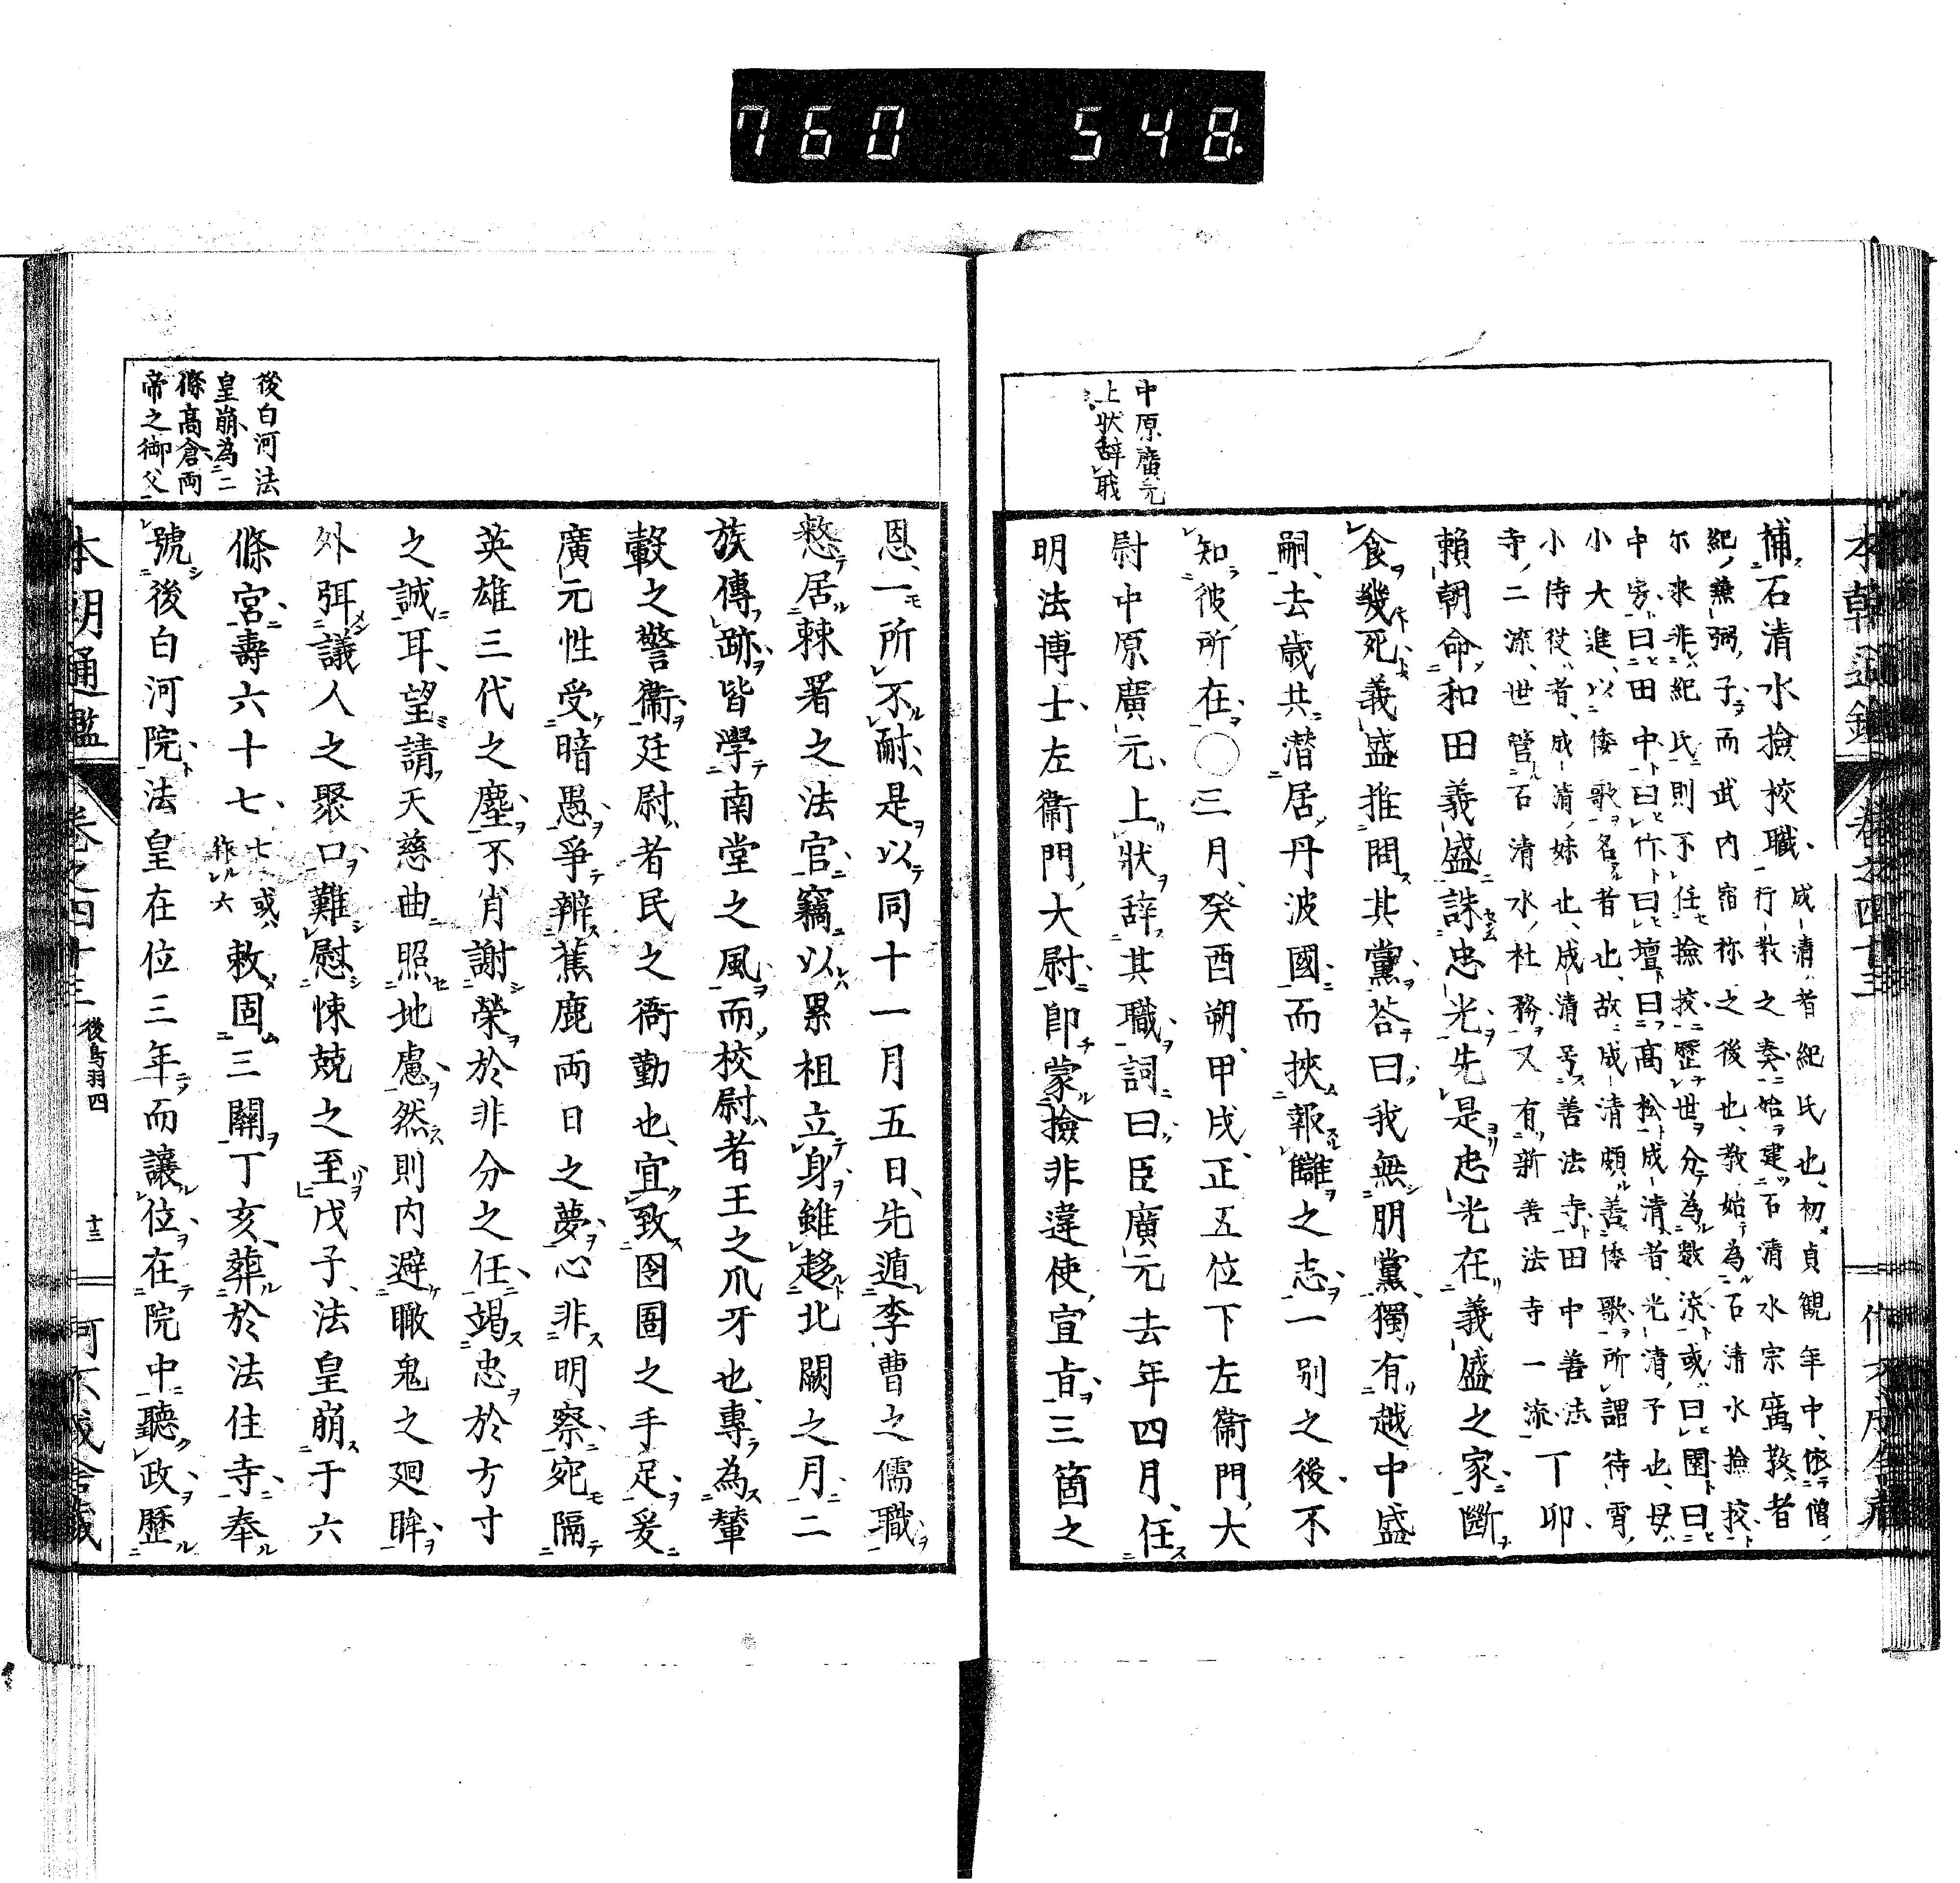 760 548.
中原廣元
上狀辭職
補石清水撿校職
成清者紀氏也初貞観年中依僧
行教之奏始建石清水宗廣教者
紀兼弼子而武内宿祢之後也教始為石清水撿挍
尓来非紀氏則不任撿挍歴世分為數流或曰園曰
中房曰田中曰竹曰壇曰髙松成清者光清子也母
小大進以倭歌名者也故成清頗善倭歌所謂待霄
小侍従者成清妹也成清号善法寺田中善法
寺二流世管石清水杜務又有新善法寺一流
丁卯
賴朝命和田義盛誅忠光先是忠光在義盛之家斷
食幾死義盛推問其黨荅曰我無朋黨獨有越中盛
嗣去歳共潛居丹波國而挾報讎之志一别之後不
知彼所在〇三月癸酉朔甲戌正五位下左衞門大
尉中原廣元上狀辭其職詞曰臣廣元去年四月任
明法博士左衞門大尉即蒙撿非違使宣旨三箇之
後白河法
皇崩為二
條髙倉両
帝之御父
恩一所不耐是以同十一月五日先遁李曹之儒職
憗居棘署之法官竊以累祖立身雖趍北闕之月二
族傳跡皆學南堂之風而校尉者王之爪牙也專為輦
轂之警衞廷尉者民之衙勤也宜致囹圄之手足爰
廣元性受暗愚爭辨蕉鹿両日之夢心非明察宛隔
英雄三代之塵不肖謝榮於非分之任竭忠於方寸
之誠耳望請天慈曲照地慮然則内避瞰鬼之廻眸
外弭議人之聚口難慰悚兢之至戊子法皇崩于六
條宮壽六十七
七或
作六
敕固三關丁亥葬於法住寺奉
號後白河院法皇在位三年而讓位在院中聽政歷
本朝通鑑 卷之四十三 後鳥羽四 十三